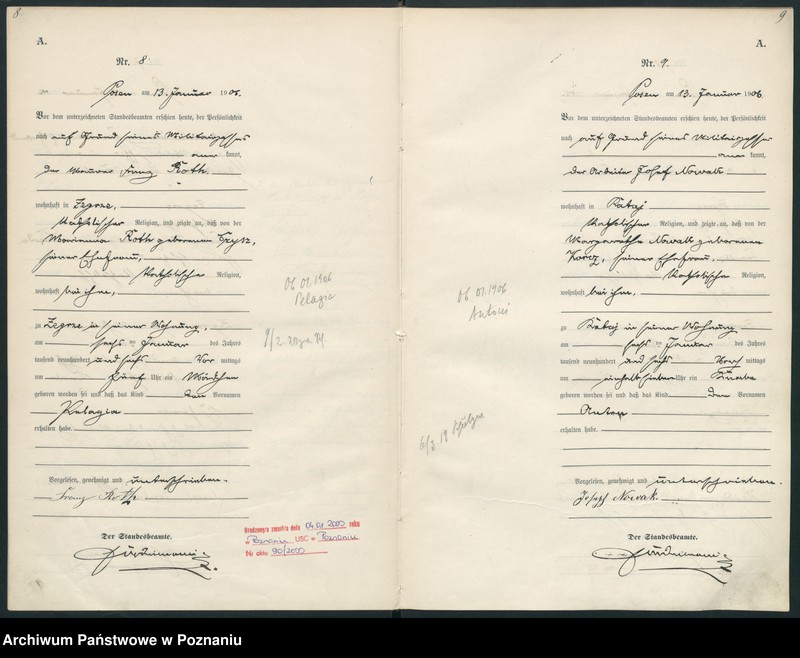 8
A.
Nr. 8.
Posen am 13. Januar 1906.
Vor dem unterzeichneten Standesbeamten erschien heute, der Persönlichkeit
nach auf Grund seines Militairpasses
kannt,
der Maurer Franz Roth.
wohnhaft in Zegrze,
katholischer Religion, und zeigte an, daß von der
Marianna Roth geborenen
seiner Ehefrau,
katholische Religion,
wohnhaft bei ihm,
zu Zegrze in seiner Wohnung,
am sechsten Januar des Jahres
tausend neunhundert und sechs Vor mittags
um fünf Uhr ein Mädchen
geboren worden sei und daß das Kind den Vornamen
Pelagia
erhalten habe.
Vorgelesen, genehmigt und unterschrieben.
Franz Roth
Der Standesbeamte.
06.01.1906
Pelagia
Urodzony/a zmarł/a dnia 04.01.2000 roku
w Poznaniu USC w Poznaniu
Nr aktu 90/2000
9
A.
Nr. 9.
Posen am 13. Januar 1906.
Vor dem unterzeichneten Standesbeamten erschien heute, der Persönlichkeit
nach auf Grund seines Militairpasses
kannt,
der Arbeiter Josef Nowak
wohnhaft in Rataj
katholischer Religion, und zeigte an, daß von der
Margarethe Nowak geborenen
seiner Ehefrau.
katholische Religion,
wohnhaft bei ihm,
zu Rataj in seiner Wohnung
am sechsten Januar des Jahres
tausend neunhundert und sechs mittags
um einhalb sieben Uhr ein Knabe
geboren worden sei und daß das Kind den Vornamen
Anton
erhalten habe.
Vorgelesen, genehmigt und unterschrieben.
Josef Nowak.
Der Standesbeamte.
06.01.1906
Antoni
Archiwum Państwowe w Poznaniu